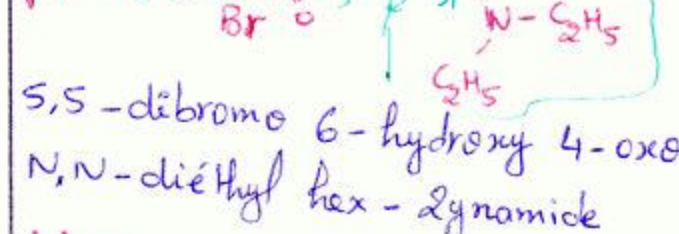 Br O N-C2H5
C2H5
5,5-dibromo 6-hydroxy 4-oxo
N,N-diéthyl hex-2ynamide